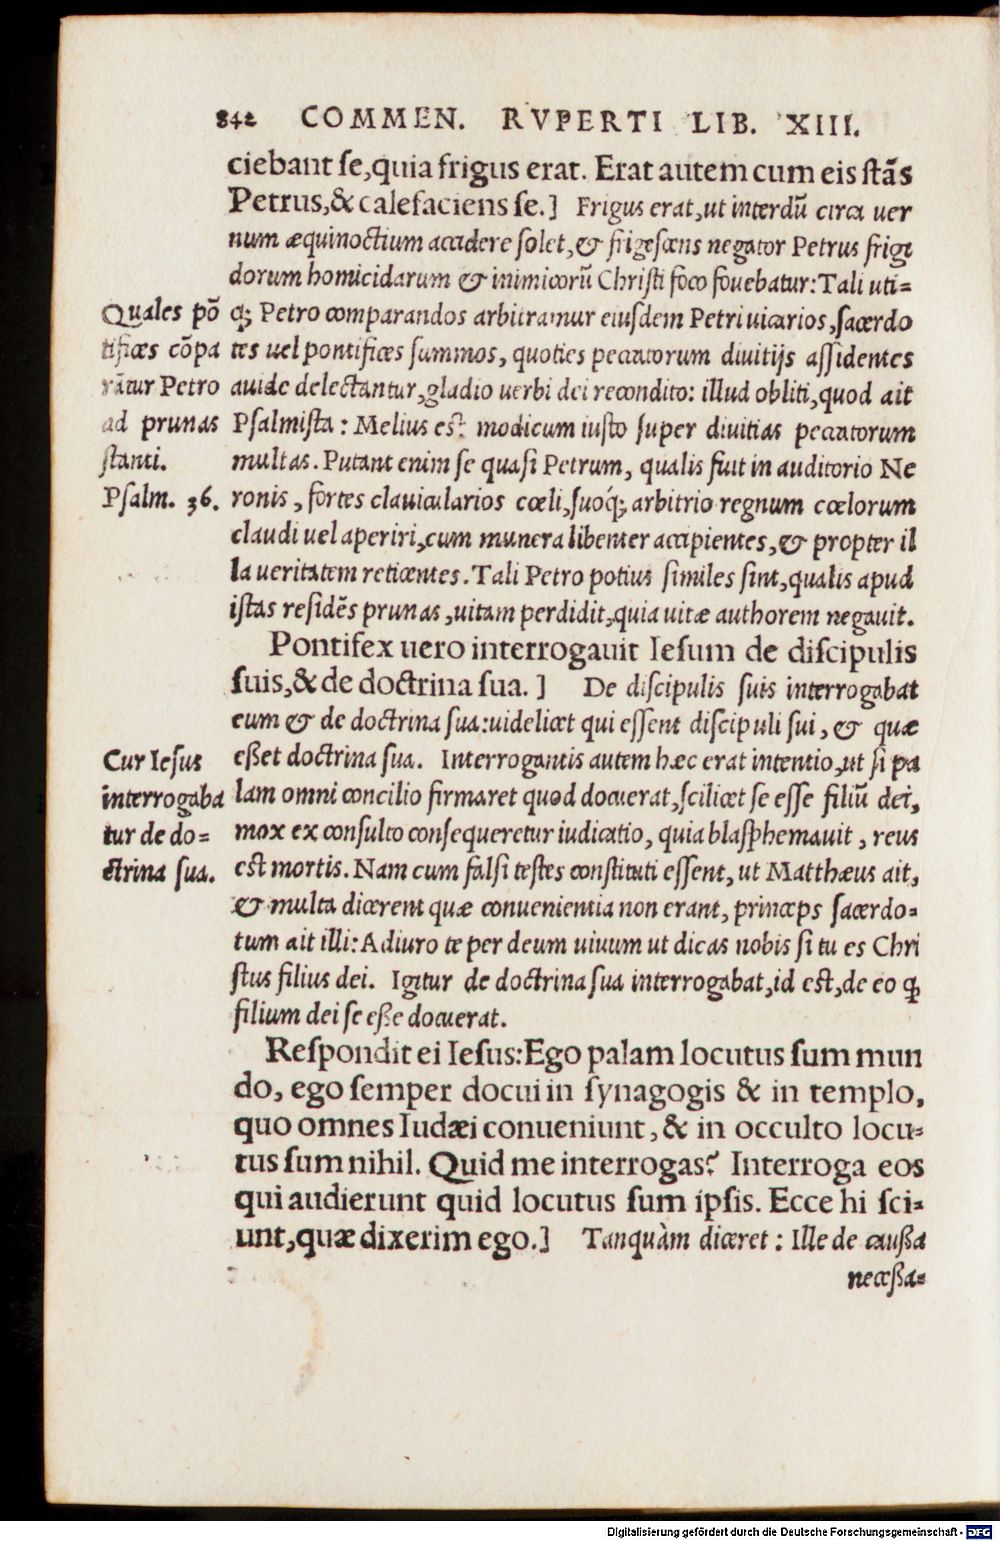 842 COMMEN. RVPERTI LIB. XIII.
ciebant se, quia frigus erat. Erat autem cum eis stãs
Petrus, & calefaciens se.] Frigus erat, ut interdũ circa uer
num æquinoctium accidere solet, & frigescens negator Petrus frigi
dorum homicidarum & inimicorũ Christi foco fouebatur: Tali uti=
Quales põ
tifices cõpa
rãtur Petro
ad prunas
stanti.
Psalm. 36.
q; Petro comparandos arbitramur eiusdem Petri uicarios, sacerdo
tes uel pontifices summos, quoties peccatorum diuitijs assidentes
auide delectantur, gladio uerbi dei recondito: illud obliti, quod ait
Psalmista: Melius est modicum iusto super diuitias peccatorum
multas. Putant enim se quasi Petrum, qualis fuit in auditorio Ne
ronis, fortes clauicularios cœli, suoq́; arbitrio regnum cœlorum
claudi uel aperiri, cum munera libenter accipientes, & propter il
la ueritatem reticentes. Tali Petro potius similes sint, qualis apud
istas residẽs prunas, uitam perdidit, quia uitæ authorem negauit.
Pontifex uero interrogauit Iesum de discipulis
suis, & de doctrina sua.] De discipulis suis interrogabat
eum & de doctrina sua: uidelicet qui essent discipuli sui, & quæ
Cur Iesus
interrogaba
tur de do=
ctrina sua.
eßet doctrina sua. Interrogantis autem hæc erat intentio, ut si pa
lam omni concilio firmaret quod docuerat, scilicet se esse filiũ dei,
mox ex consulto consequeretur iudicatio, quia blasphemauit, reus
est mortis. Nam cum falsi testes constituti essent, ut Matthæus ait,
& multa dicerent quæ conuenientia non erant, princeps sacerdo=
tum ait illi: Adiuro te per deum uiuum ut dicas nobis si tu es Chri
stus filius dei. Igitur de doctrina sua interrogabat, id est, de eo ꝙ
filium dei se eße docuerat.
Respondit ei Iesus: Ego palam locutus sum mun
do, ego semper docui in synagogis & in templo,
quo omnes Iudæi conueniunt, & in occulto locu=
tus sum nihil. Quid me interrogas? Interroga eos
qui audierunt quid locutus sum ipsis. Ecce hi sci=
unt, quæ dixerim ego.] Tanquàm diceret: Ille de caußa
neceßa=
Digitalisierung gefördert durch die Deutsche Forschungsgemeinschaft - DFG